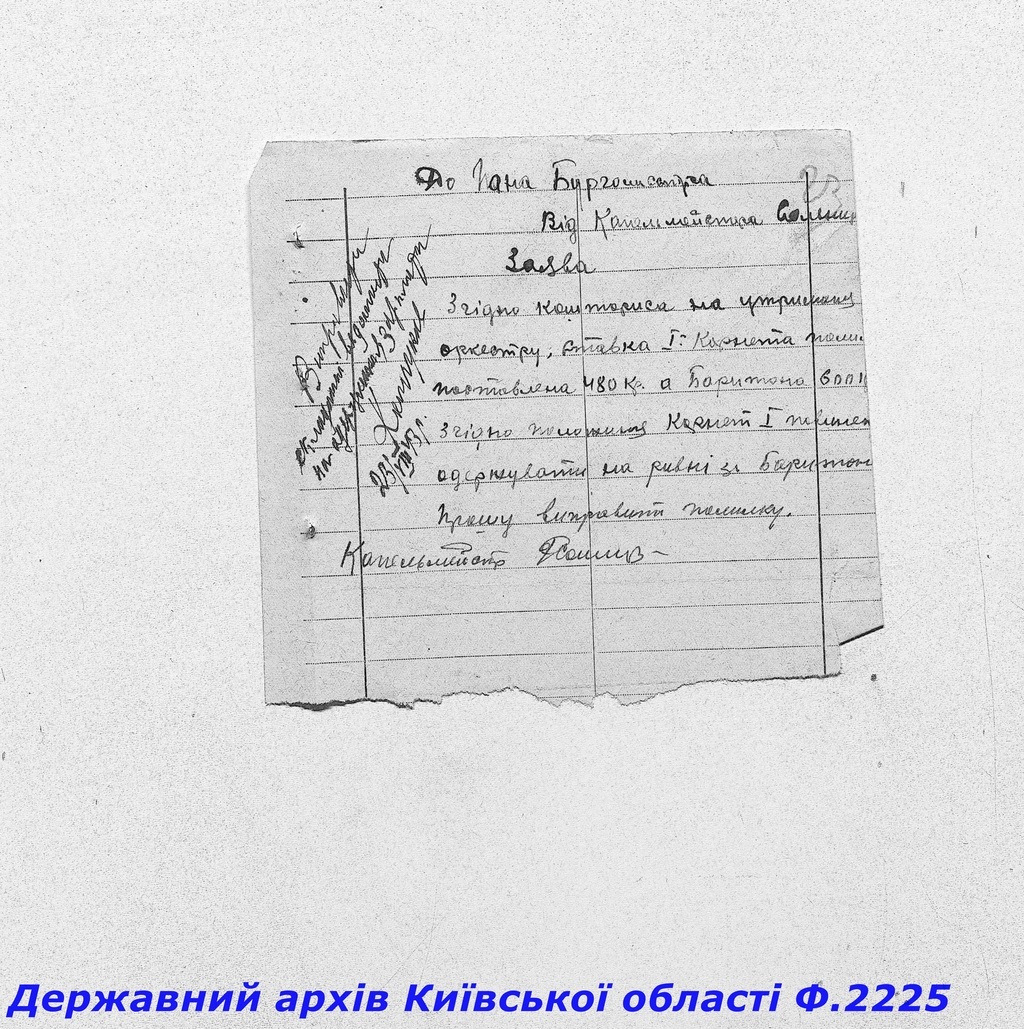 До Пана Бургомистра
Від Капельмейстра
Заява
Згідно кошториса на утримання
оркестру, ставка I: Корнета
поставлена 480 кр. а Баритона 600
Згідно положення Корнет I повинен
одержувати на рівні з Баритон
Прошу виправити помилку.
Капельмейстр
на одержання зарплати
23/VII 43 р.
Державний архів Київської області Ф.2225